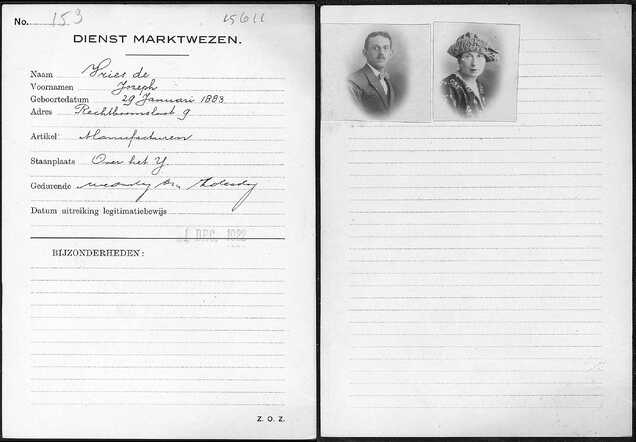 No. 153 15611
DIENST MARKTWEZEN.
Naam Vries de
Voornamen Joseph
Geboortedatum 29 Januari 1883
Adres Rechtboomsloot 9
Artikel Manufacturen
Staanplaats Over het Y.
Gedurende maandag en Zaterdag
Datum uitreiking legitimatiebewijs
1 DEC. 1922
BIJZONDERHEDEN:
Z. O. Z.